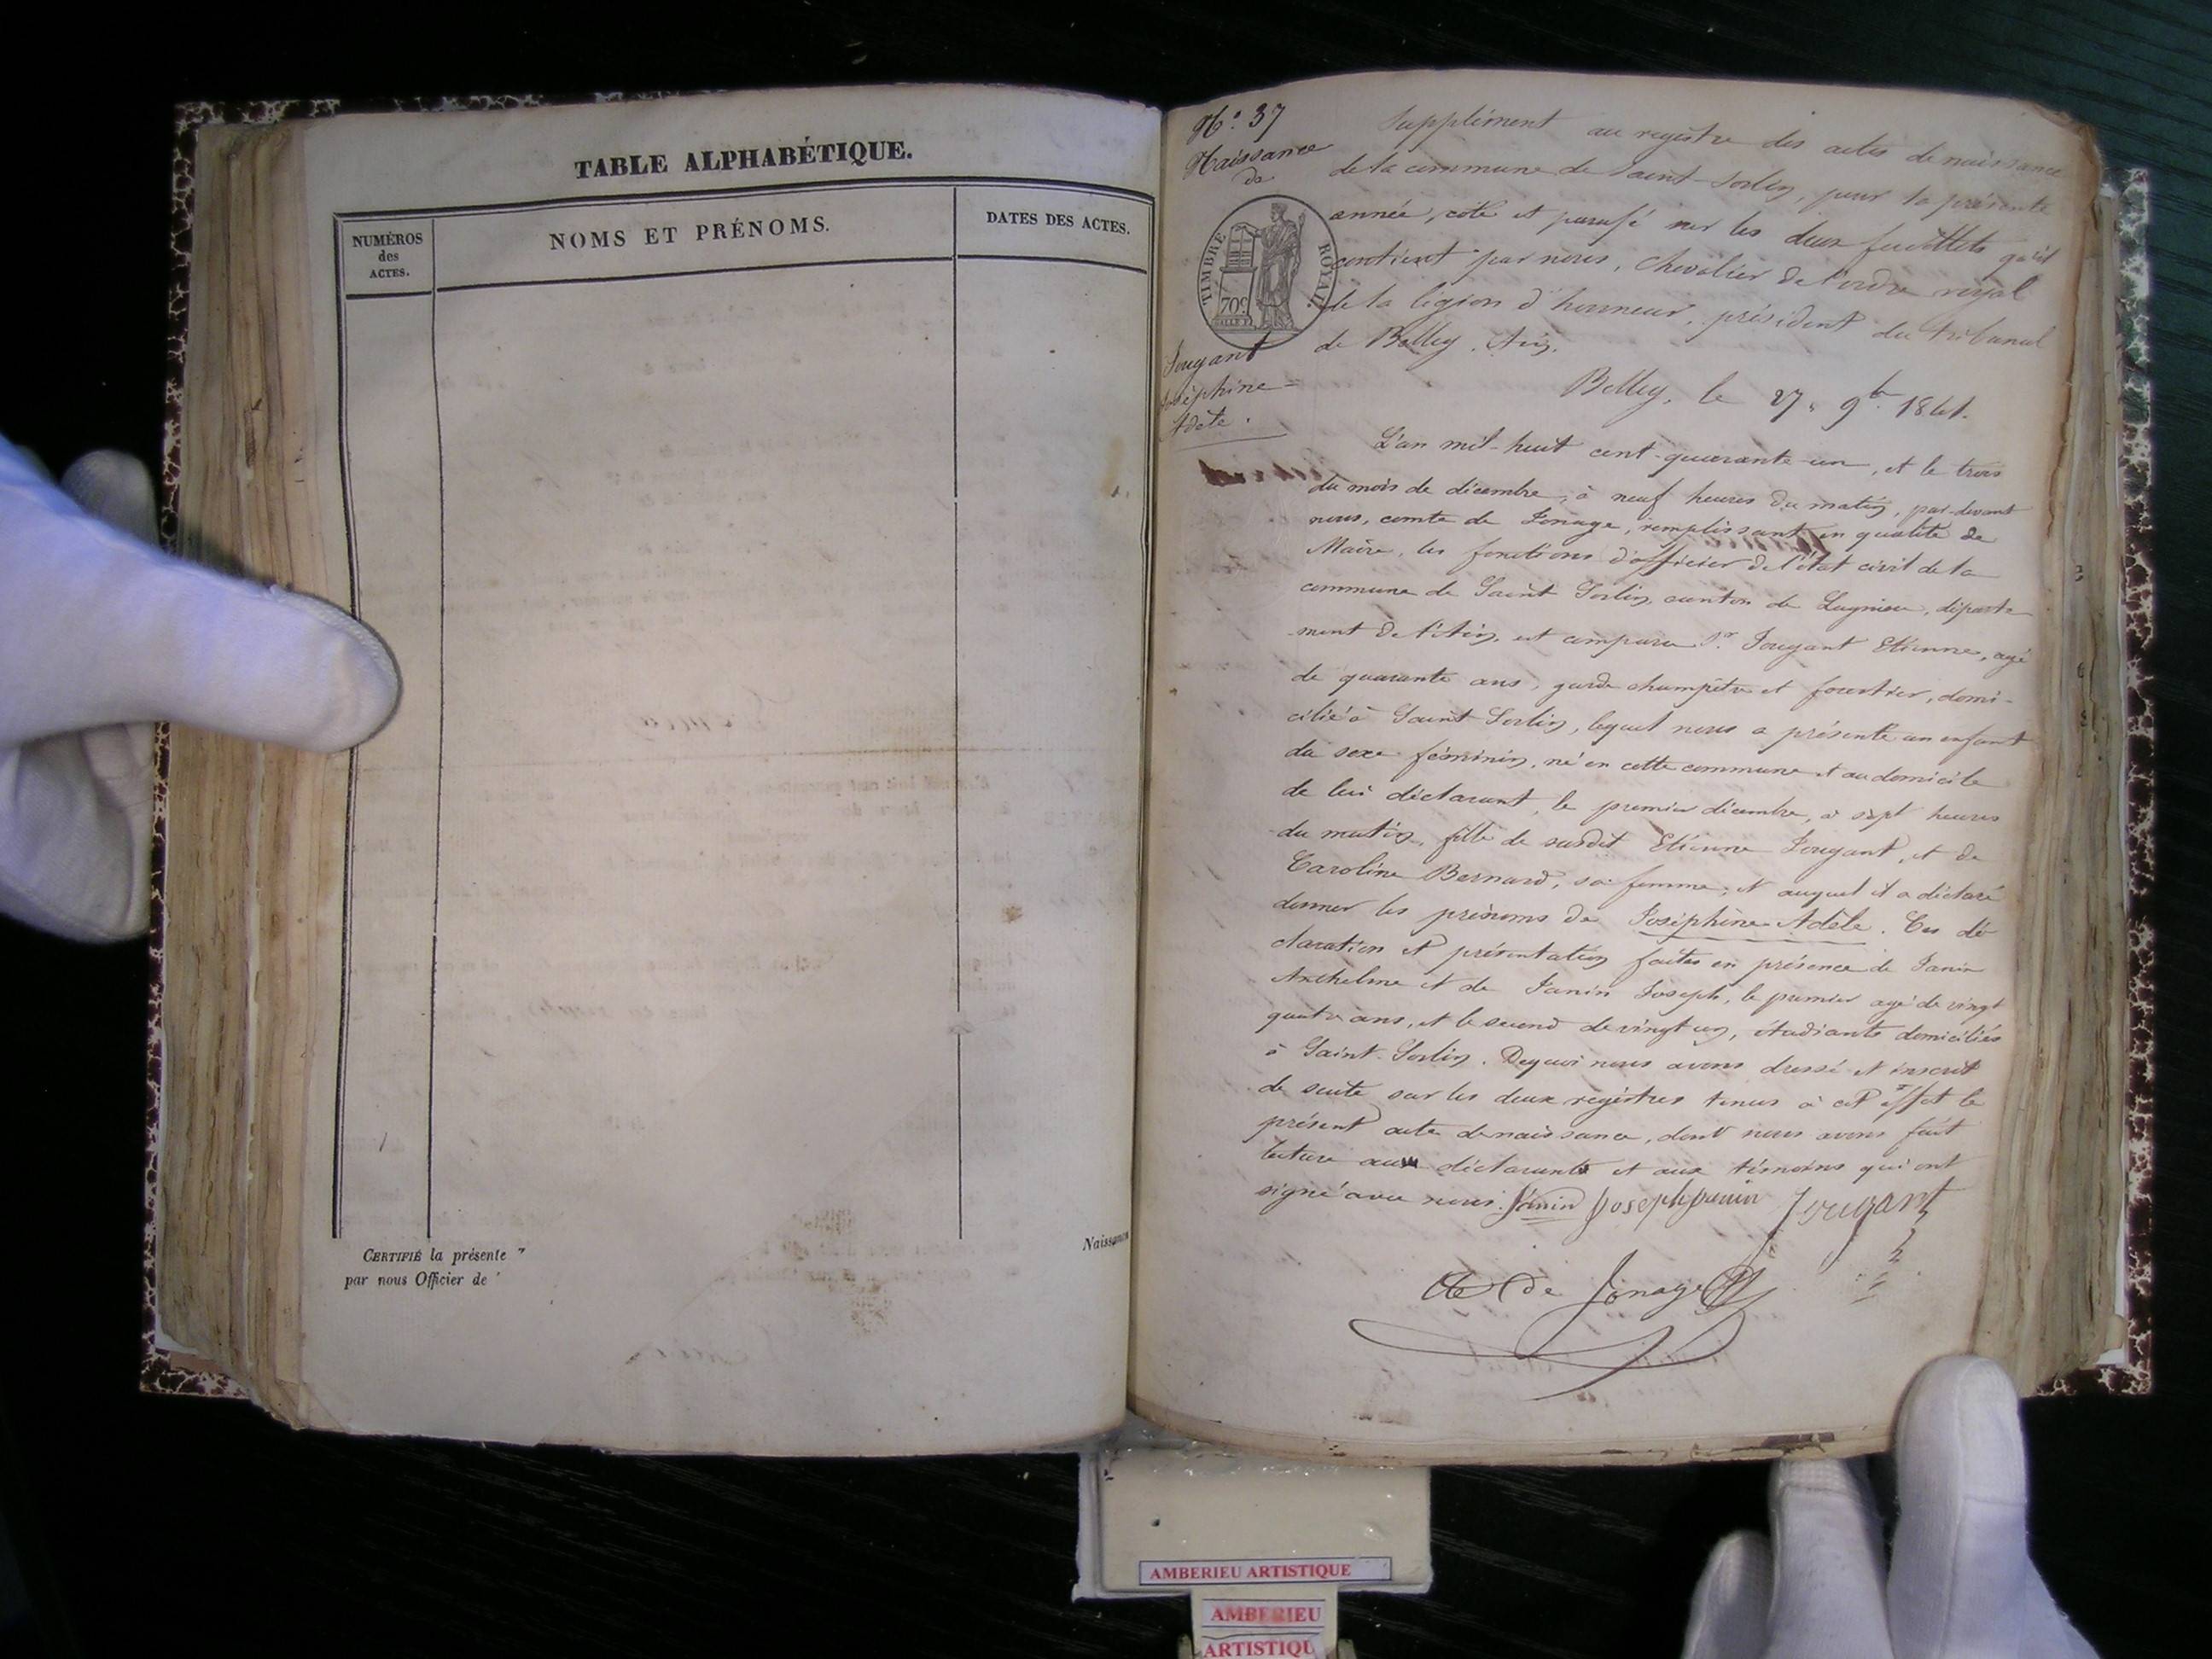 TABLE ALPHABÉTIQUE.
NUMÉROS
des
ACTES.
NOMS ET PRÉNOMS.
DATES DES ACTES.
CERTIFIÉ la présente
par nous Officier de
Naissance
N.° 37
Naissance
de
TIMBRE ROYAL
70c
Jougant
Joséphine=
Adèle.
Supplément au registre des actes de naissance
de la commune de Saint-Sorlin, pour la présente
année, coté et parafé sur les deux feuillets qu'il
contient par nous, Chevalier de l'ordre royal
de la légion d'honneur, président du tribunal
de Belley. Ain.
Belley, le 27 9bre 1841.
L'an mil-huit cent-quarante-un, et le trois
du mois de décembre, à neuf heures du matin, par-devant
nous, comte de Jonage, remplissant en qualité de
Maire, les fonctions d'officier de l'état civil de la
commune de Saint Sorlin, canton de Lagnieu, départe
ment de l'Ain, est comparu Sr. Jougant Etienne, agé
de quarante ans, garde champêtre et forestier, domi-
cilié à Saint Sorlin, lequel nous a présenté un enfant
du sexe féminin, né en cette commune et au domicile
de lui déclarant, le premier décembre, à sept heures
du matin, fille de susdit Etienne Jougant, et de
Caroline Bernard, sa femme; et auquel il a déclaré
donner les prénoms de Joséphine-Adèle. Ces dé
claration et présentation faites en présence de Janin
Anthelme et de Janin Joseph, le premier agé de vingt
quatre ans, et le second de vingt un, étudiants domiciliés
à Saint-Sorlin. De quoi nous avons dressé et inscrit
de suite sur les deux registres tenus à cet effet le
présent acte de naissance, dont nous avons fait
lecture au déclarant et aux témoins qui ont
signé avec nous. Janin Joseph janin Jougant
de Jonage
AMBERIEU ARTISTIQUE
AMBERIEU
ARTISTIQU